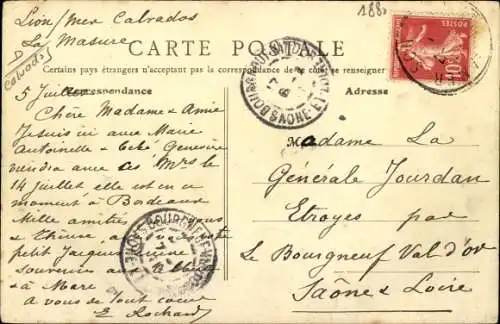 Lion/mer Calvados
La Masure
Calvados
188
CARTE POSTALE
Certains pays étrangers n'acceptant pas la correspondance de ce côté se renseigner
Correspondance
Adresse
5 Juillet
Chère Madame & Amie
Je suis ici avec Marie
Antoinette & Bébé Geneviève
viendra avec ces Mrs le
14 juillet elle est en ce
moment à Bordeaux
Mille amitiés vous
&
petit Jacques
souvenirs aux
à Mare
à vous de tout coeur
E Rochard
Madame La
Générale Jourdan
Etroyes par
Le Bourgneuf Val d'or
Saône & Loire
POSTES
10
BOURGNEUF
SAONE-ET-LOIRE